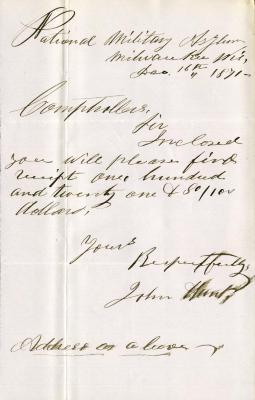 National Military Asylum
Milwaukee Wis,
Dec. 16th 1871
Comptroller,
Sir
Inclosed
you will please find
receipt one hundred
and twenty one & 80/100
dollars,
Yours
Respectfully,
John Hunt
Address as above